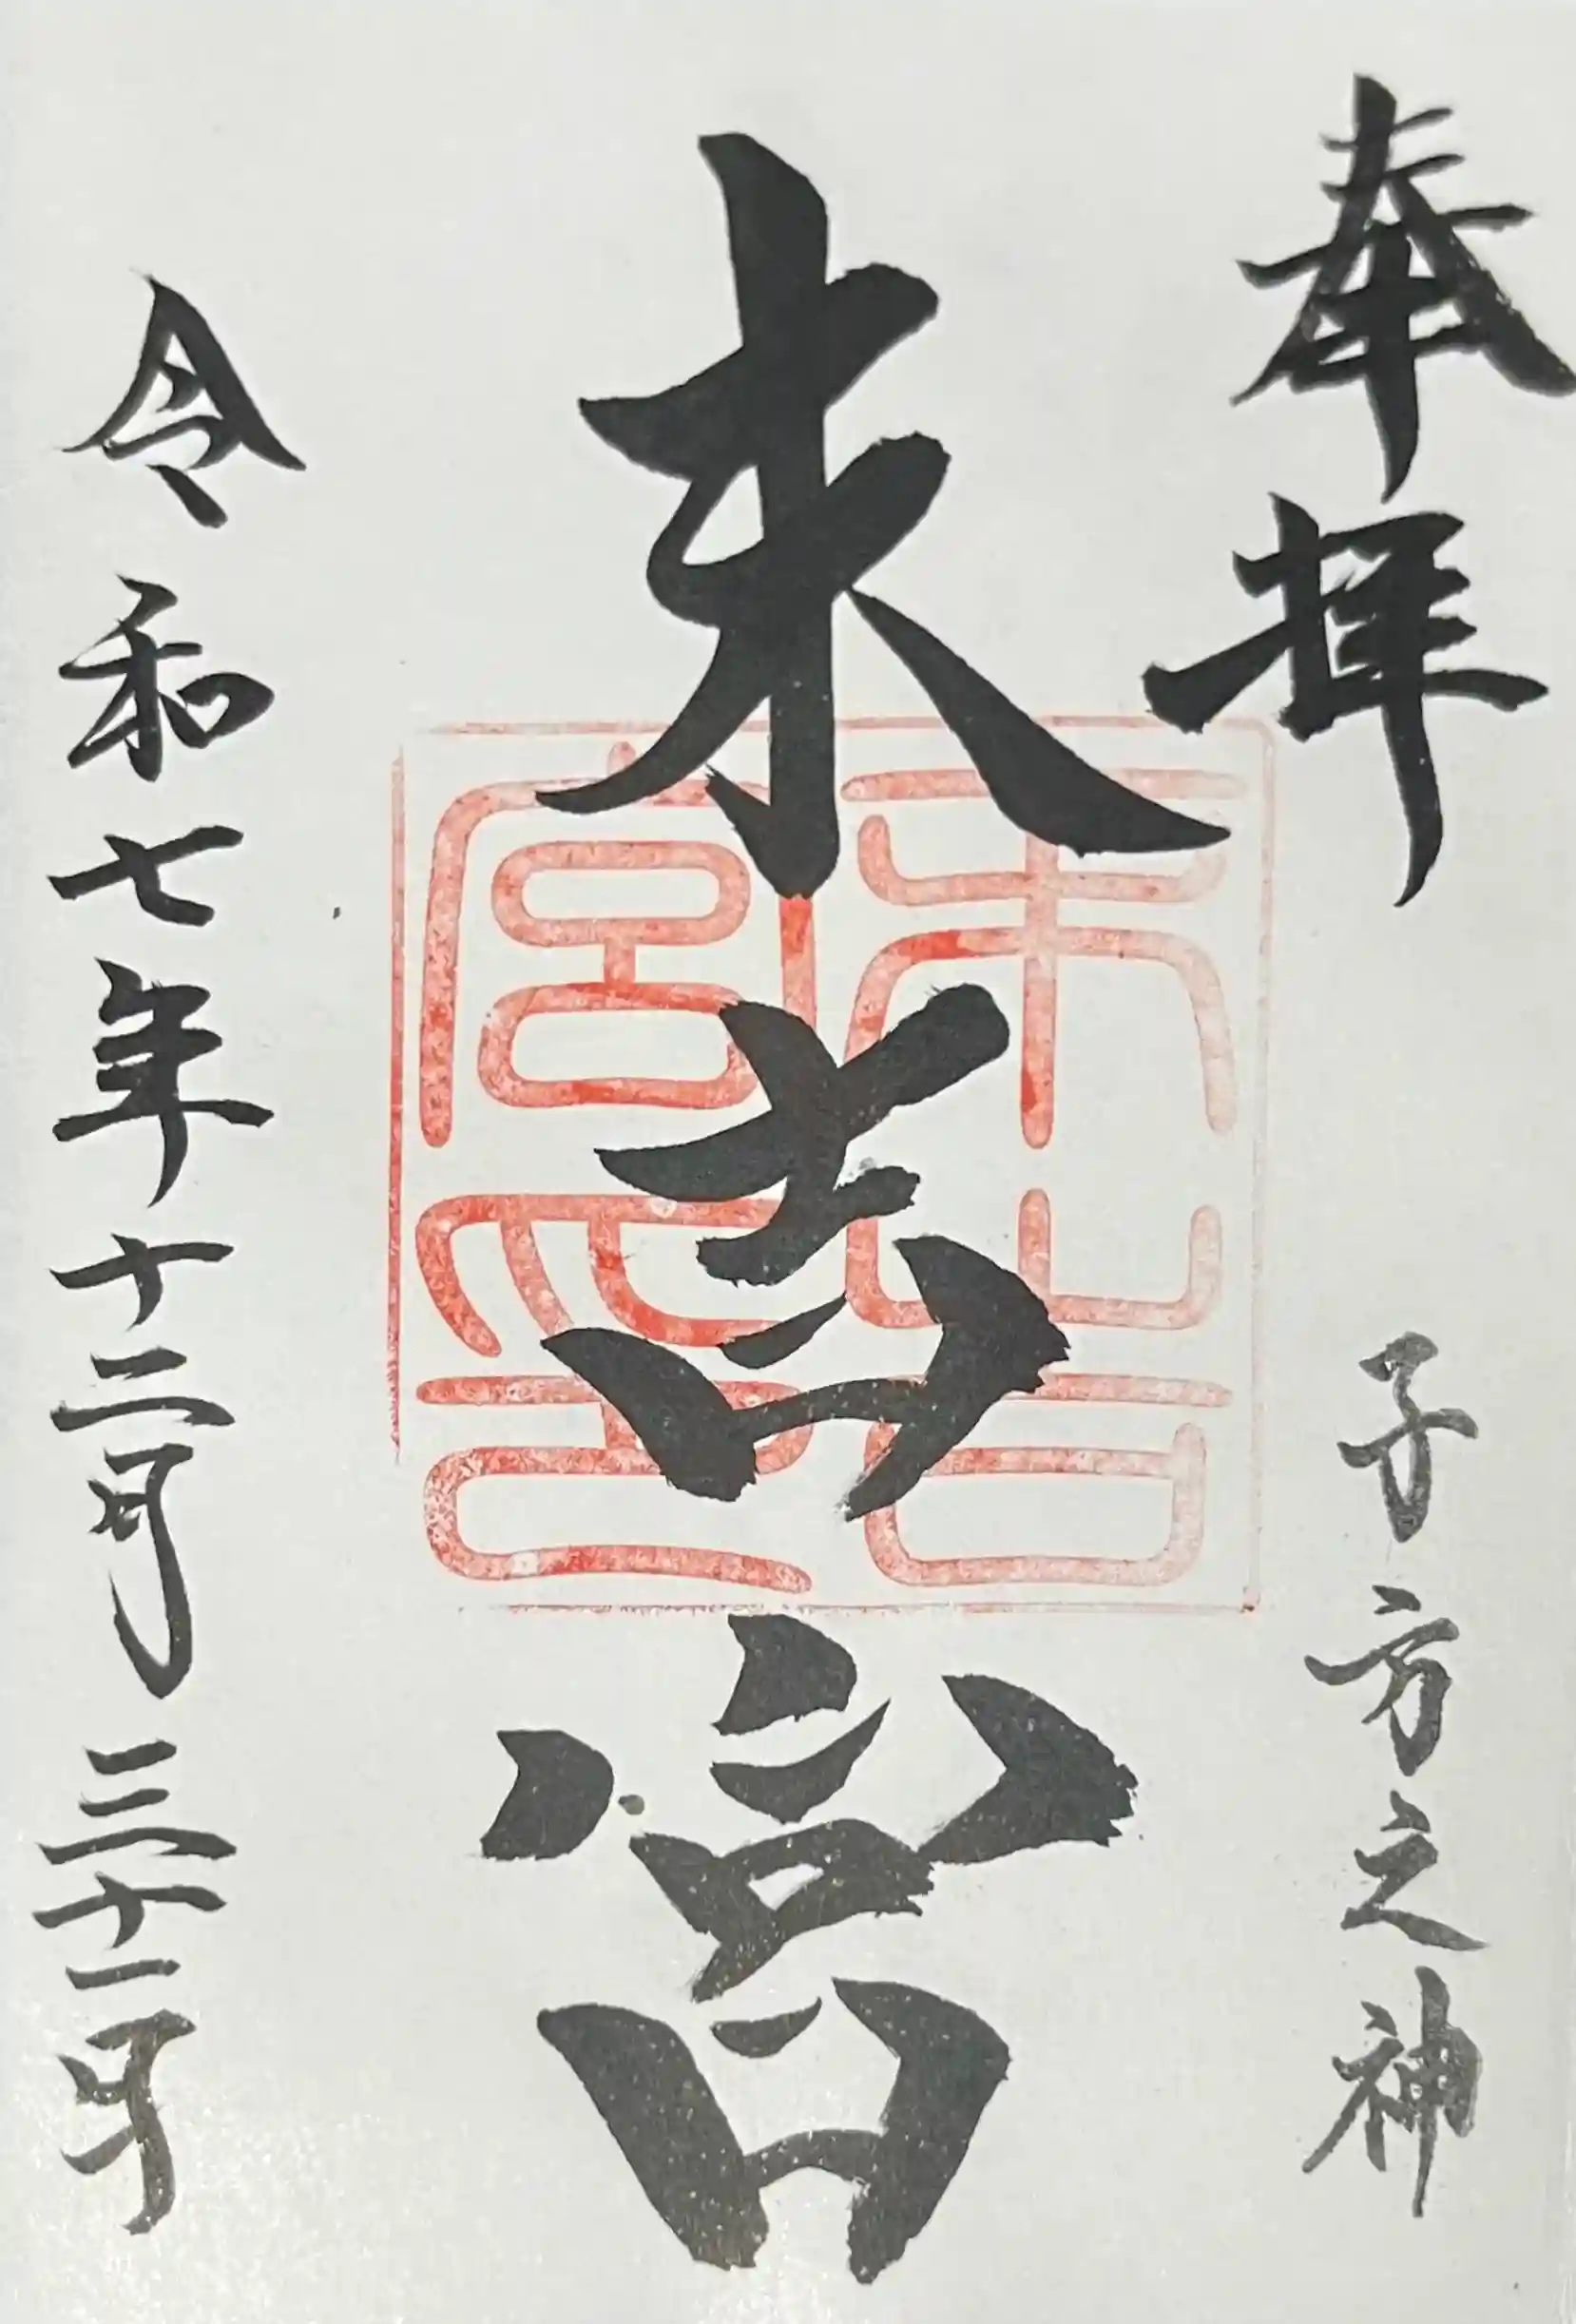 奉拝
子方之神
末吉宮
末吉宮之印
令和七年十二月三十一日